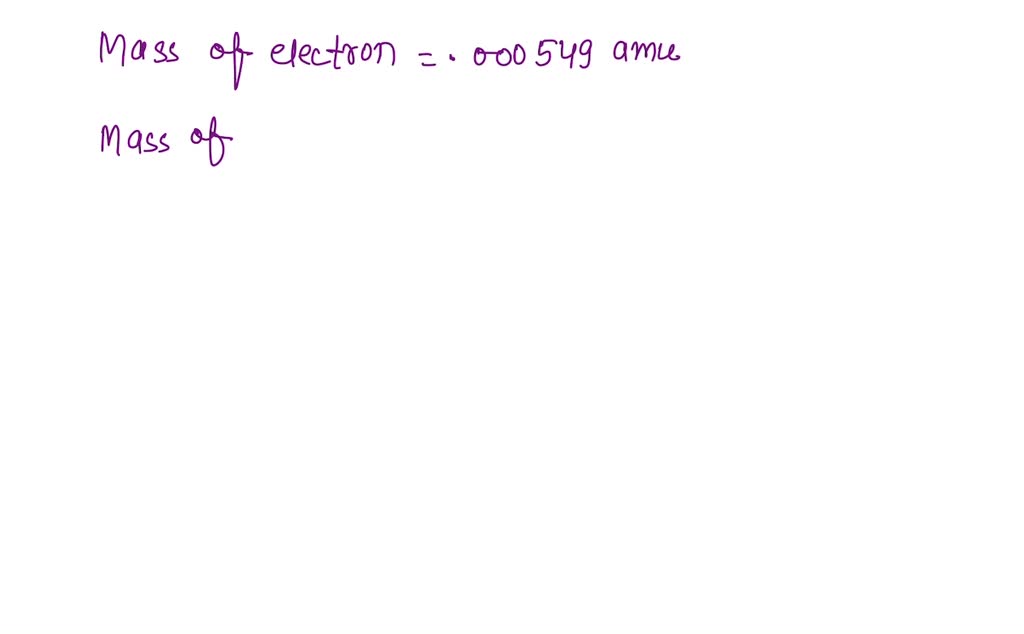 Mass of electron = .000549 amu
Mass of